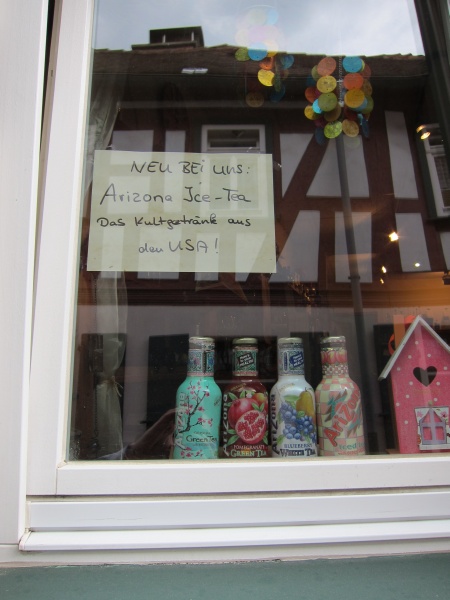 NEU BEI UNS:
Arizona Ice-Tea
Das Kultgetränk aus
den USA!
GREEN TEA
POMEGRANATE
GREEN TEA
BLUEBERRY
WHITE TEA
ARIZONA